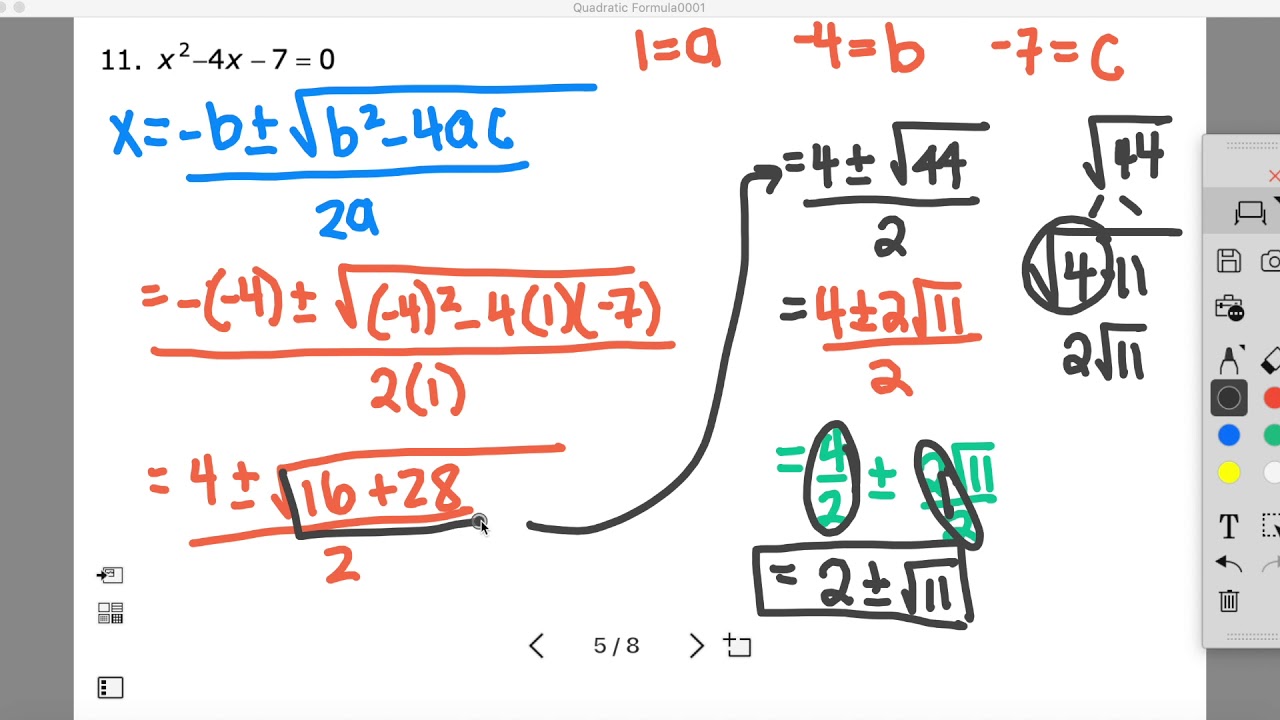 Quadratic Formula0001
11. x²–4x – 7 = 0
1=a -4=b -7=c
x= -b ± √b²-4ac
2a
= -(-4) ± √(-4)²-4(1)(-7)
2(1)
= 4 ± √16+28
2
= 4 ± √44
2
= 4±2√11
2
= 4/2 ± 2√11/2
= 2 ± √11
√44
√4·11
2√11
5 / 8
T